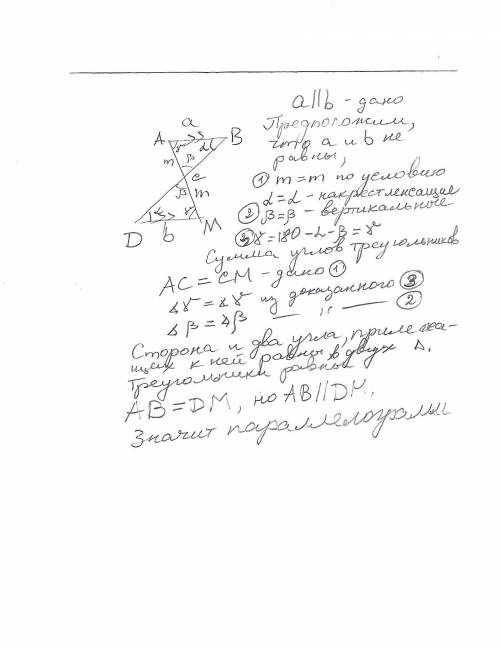 a
A γ α B
m β
c
β m
α γ
D b M
a||b - дано
Предположим,
что a и b не
равны,
① m = m по условию
α = α - накрестлежащие
② β = β - вертикальные
③ γ = 180 - α - β = γ
Сумма углов треугольников
AC = CM - дано ①
∡γ = ∡γ из доказанного ③
∡β = ∡β — " — ②
Сторона и два угла, прилежа-
щих к ней равны в двух Δ.
Треугольники равны
AB = DM, но AB || DM,
Значит параллелограмы